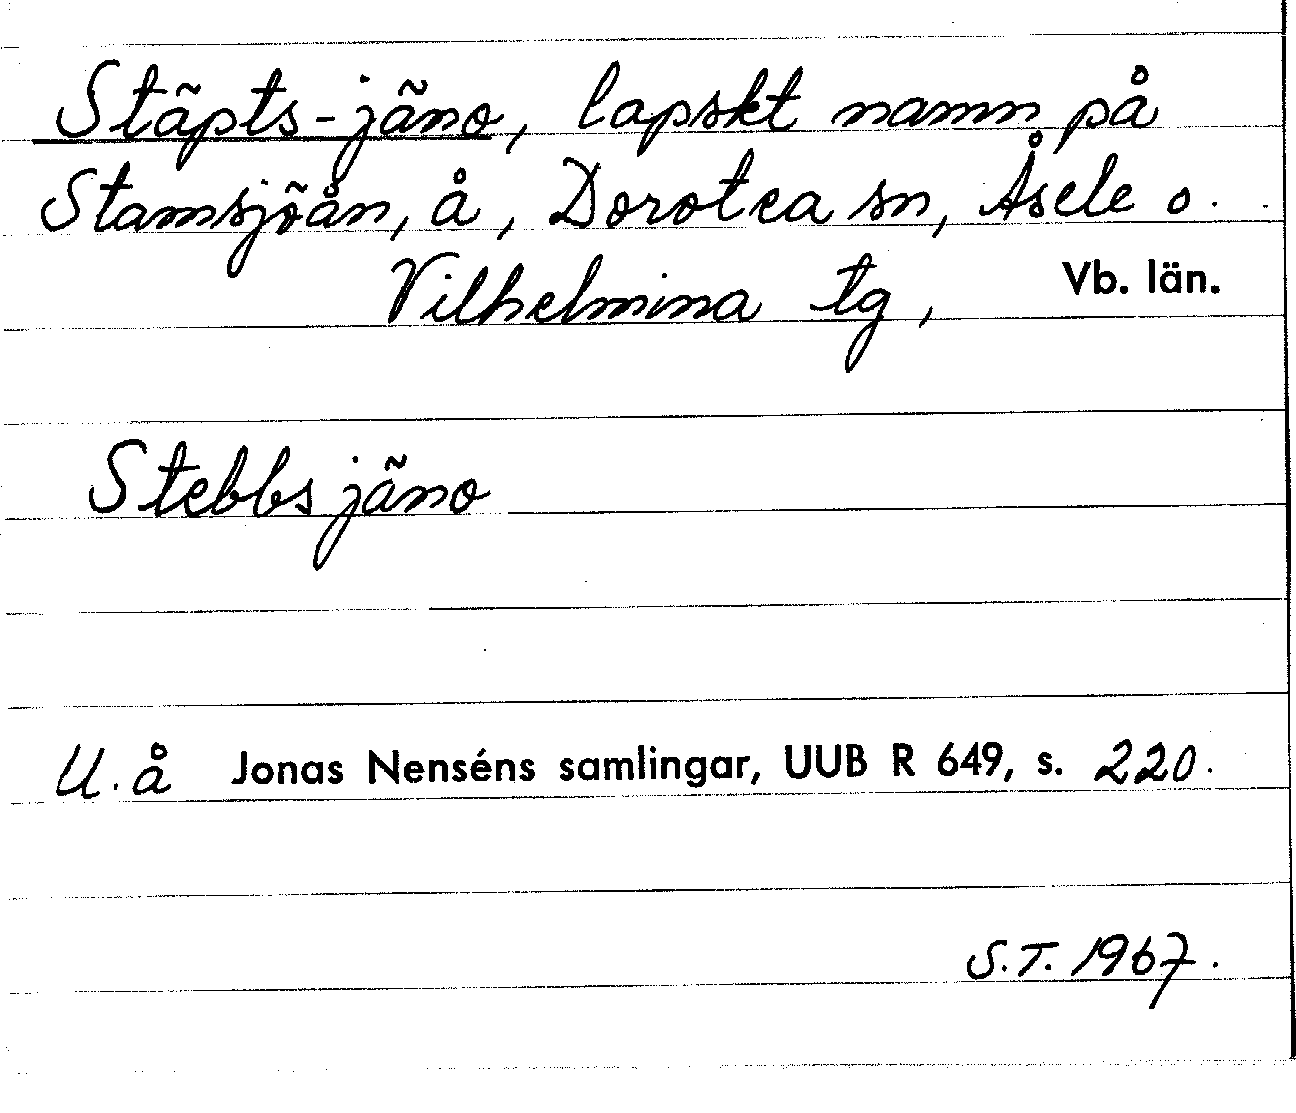 Stäpts-jäno, lapskt namn på
Stamsjöån, å, Dorotea sn, Åsele o.
Vilhelmina tg, Vb. län.
Stebbsjäno
U.å Jonas Nenséns samlingar, UUB R 649, s. 220.
S.T. 1967.